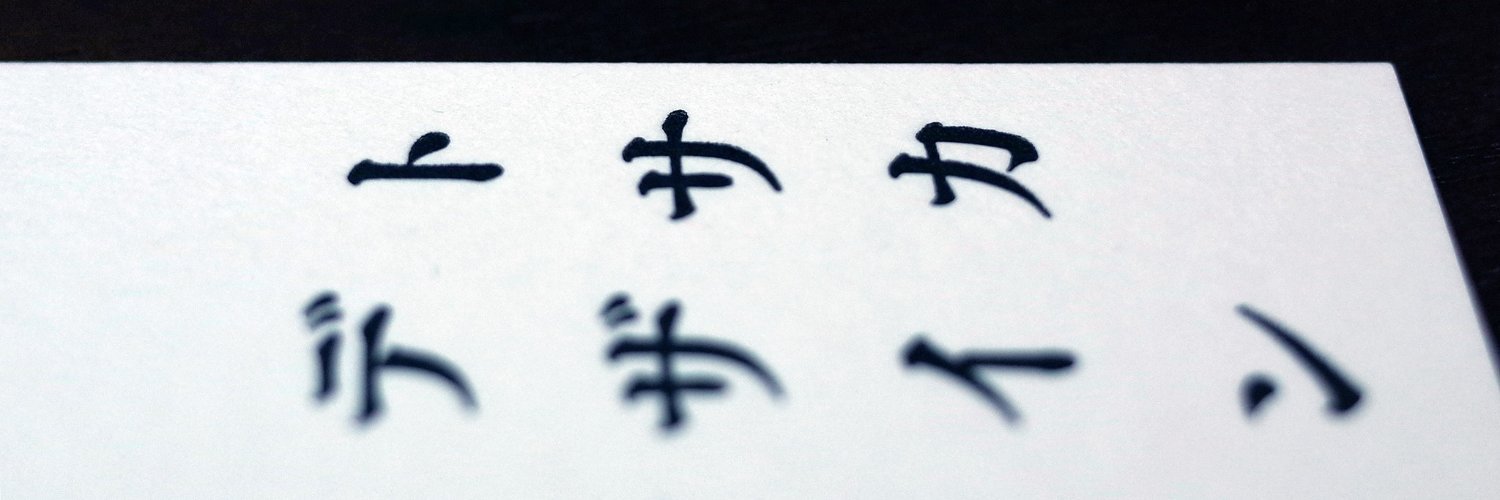 トサカ
デザイン